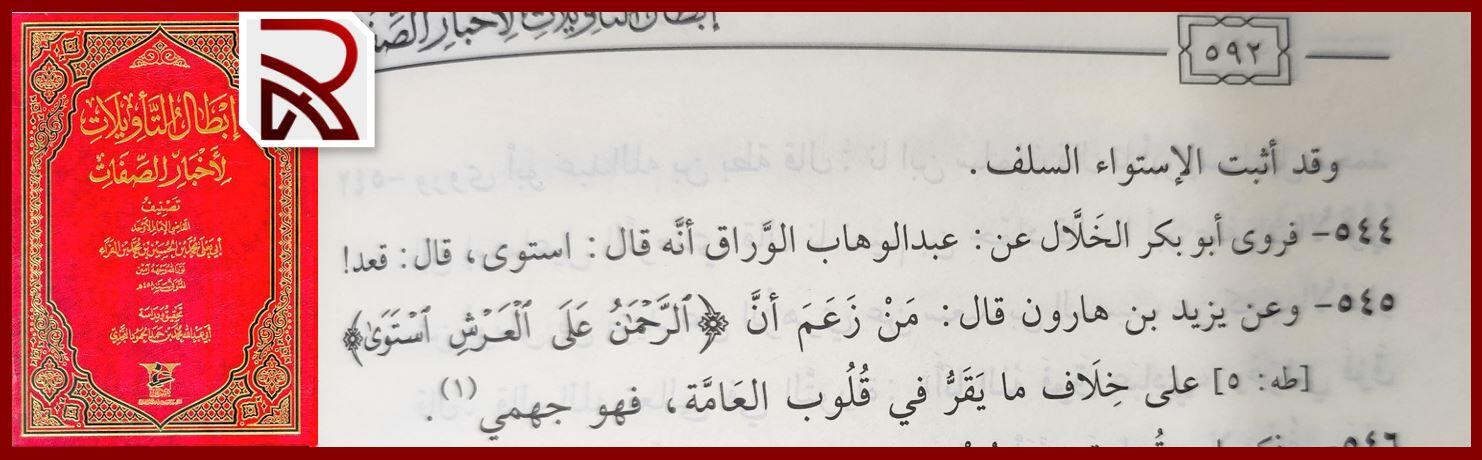 إبطال التأويلات
لأخبار الصفات
تصنيف
القاضي الإمام الأوحد
أبي يعلى محمد بن الحسين بن محمد بن الفراء
المتوفى سنة ٤٥٨هـ
تحقيق ودراسة
أبي عبد الله محمد بن حمد الحمود النجدي
إبطال التأويلات لأخبار الصفات
٥٩٢
وقد أثبت الإستواء السلف.
٥٤٤- فروى أبو بكر الخَلَّال عن: عبدالوهاب الوَّراق أنَّه قال: استوى، قال: قعد!
٥٤٥- وعن يزيد بن هارون قال: مَنْ زَعَمَ أنَّ ﴿ٱلرَّحْمَٰنُ عَلَى ٱلْعَرْشِ ٱسْتَوَىٰ﴾
[طه: ٥] على خِلَاف ما يَقَرُّ في قُلُوب العَامَّة، فهو جهمي(١).
٥٤٦-